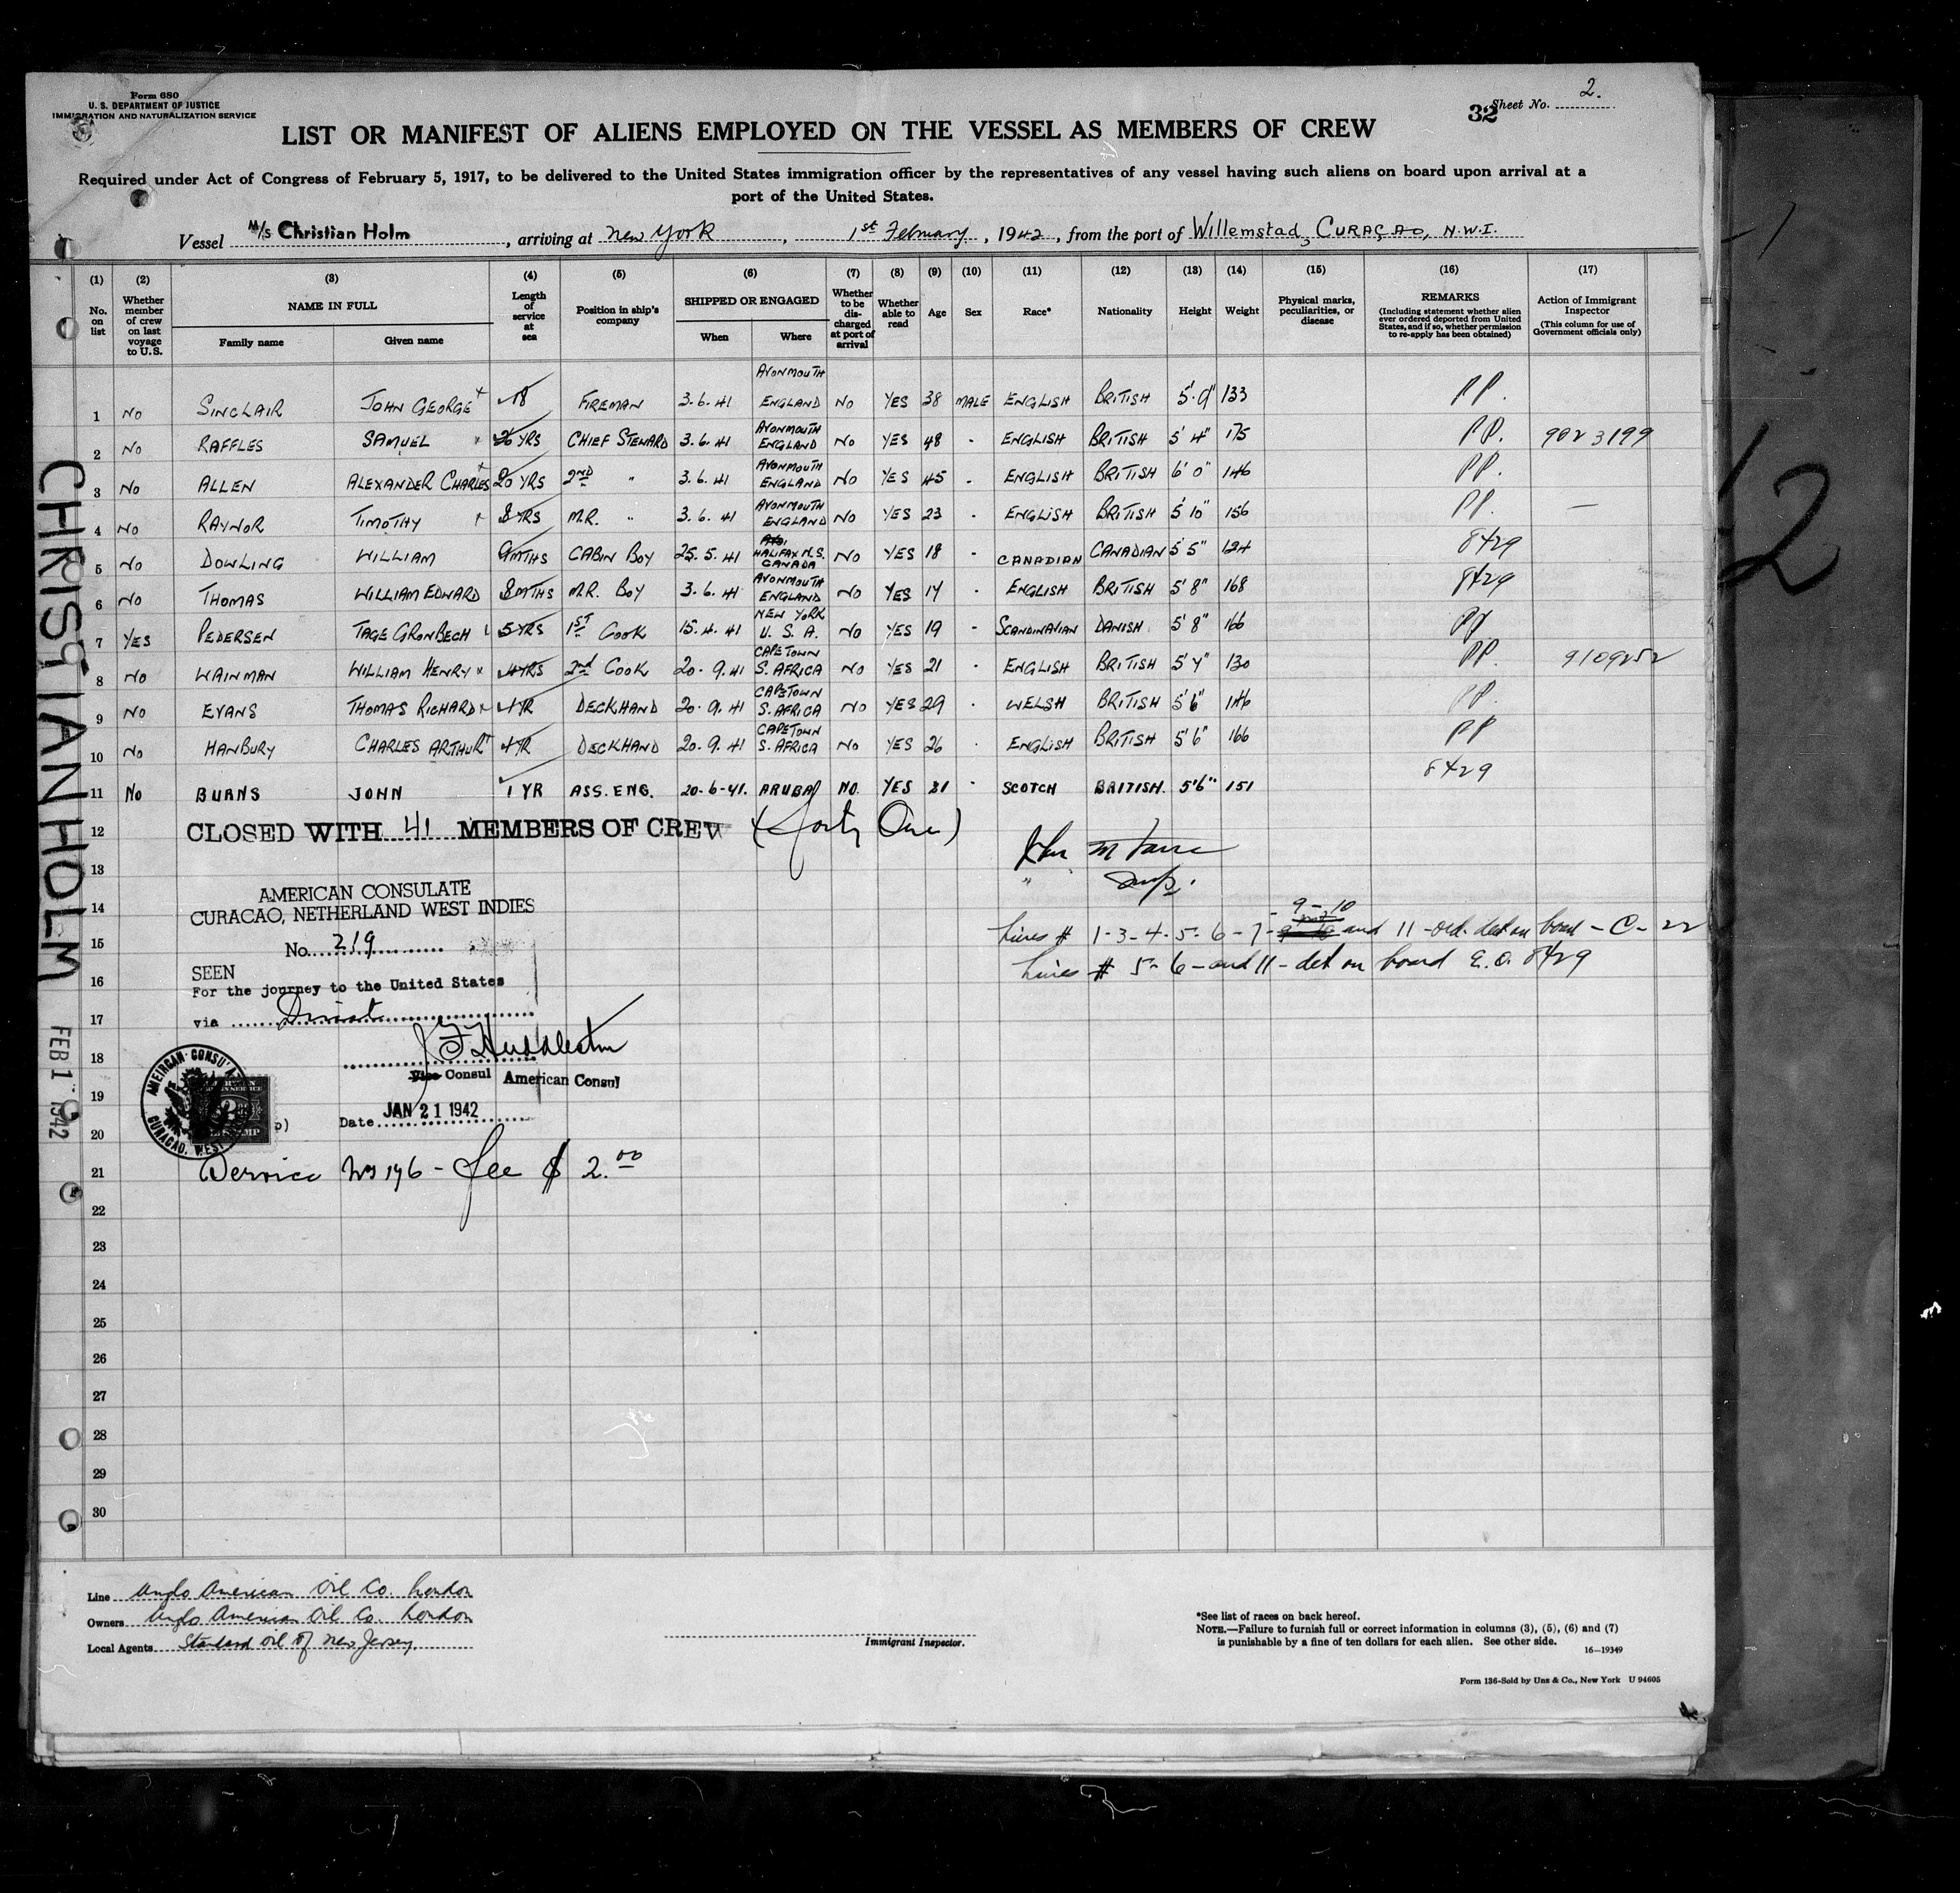 Form 680
U. S. DEPARTMENT OF JUSTICE
IMMIGRATION AND NATURALIZATION SERVICE
32 Sheet No. 2.
LIST OR MANIFEST OF ALIENS EMPLOYED ON THE VESSEL AS MEMBERS OF CREW
Required under Act of Congress of February 5, 1917, to be delivered to the United States immigration officer by the representatives of any vessel having such aliens on board upon arrival at a
port of the United States.
Vessel M/S Christian Holm, arriving at New York, 1st February, 1942, from the port of Willemstad, CURAÇAO, N.W.I.
(1) (2) (3) (4) (5) (6) (7) (8) (9) (10) (11) (12) (13) (14) (15) (16) (17)
No. on list
Whether member of crew on last voyage to U.S.
NAME IN FULL
Family name
Given name
Length of service at sea
Position in ship's company
SHIPPED OR ENGAGED
When
Where
Whether to be discharged at port of arrival
Whether able to read
Age
Sex
Race*
Nationality
Height
Weight
Physical marks, peculiarities, or disease
REMARKS
(Including statement whether alien ever ordered deported from United States, and if so, whether permission to re-apply has been obtained)
Action of Immigrant Inspector
(This column for use of Government officials only)
1 NO SINCLAIR JOHN GEORGE 18 FIREMAN 3.6.41 AVONMOUTH ENGLAND NO YES 38 MALE ENGLISH BRITISH 5' 9" 133 PP.
2 NO RAFFLES SAMUEL 26 YRS CHIEF STEWARD 3.6.41 AVONMOUTH ENGLAND NO YES 48 - ENGLISH BRITISH 5' 4" 175 PP. 9023199
3 NO ALLEN ALEXANDER CHARLES 20 YRS 2ND " 3.6.41 AVONMOUTH ENGLAND NO YES 45 - ENGLISH BRITISH 6' 0" 146 PP.
4 NO RAYNOR TIMOTHY 8 YRS M.R. " 3.6.41 AVONMOUTH ENGLAND NO YES 23 - ENGLISH BRITISH 5' 10" 156 PP. —
5 NO DOWLING WILLIAM 9 MTHS CABIN BOY 25.5.41 HALIFAX N.S. CANADA NO YES 18 - CANADIAN CANADIAN 5' 5" 124 8429
6 NO THOMAS WILLIAM EDWARD 8 MTHS M.R. BOY 3.6.41 AVONMOUTH ENGLAND NO YES 17 - ENGLISH BRITISH 5' 8" 168 8429
7 YES PEDERSEN TAGE GRONBECH 5 YRS 1ST COOK 15.4.41 NEW YORK U.S.A. NO YES 19 - SCANDINAVIAN DANISH 5' 8" 166 PP
8 NO WAINMAN WILLIAM HENRY 4 YRS 2nd COOK 20.9.41 CAPETOWN S. AFRICA NO YES 21 - ENGLISH BRITISH 5' 7" 130 PP. 9109252
9 NO EVANS THOMAS RICHARD YR DECKHAND 20.9.41 CAPETOWN S. AFRICA NO YES 29 - WELSH BRITISH 5' 6" 146 PP.
10 NO HANBURY CHARLES ARTHUR YR DECKHAND 20.9.41 CAPETOWN S. AFRICA NO YES 26 - ENGLISH BRITISH 5' 6" 166 PP
11 NO BURNS JOHN 1 YR ASS. ENG. 20-6-41. ARUBA NO. YES 21 - SCOTCH BRITISH. 5'6" 151 8429
12 CLOSED WITH 41 MEMBERS OF CREW (Forty One)
13
Insp.
14 AMERICAN CONSULATE
CURACAO, NETHERLAND WEST INDIES
9 - 10
Lines # 1-3-4-5-6-7- and 11 - ord. det on board - C-22
15 No. 219
Lines # 5-6- and 11 - det on board E.O. 8429
16 SEEN
For the journey to the United States
17 via Direct
18
Vice Consul American Consul
19 Date JAN 21 1942
20
AMERICAN CONSULATE
CURACAO, WEST
21 Service No 196 - Fee $ 2.00
22
23
24
25
26
27
28
29
30
CHRISTIAN HOLM FEB 1 1942
12
Line Anglo American Oil Co. London
Owners Anglo American Oil Co. London
Local Agents Standard Oil of New Jersey
Immigrant Inspector.
*See list of races on back hereof.
NOTE.—Failure to furnish full or correct information in columns (3), (5), (6) and (7)
is punishable by a fine of ten dollars for each alien. See other side.
16—19349
Form 136-Sold by Unz & Co., New York U 94605